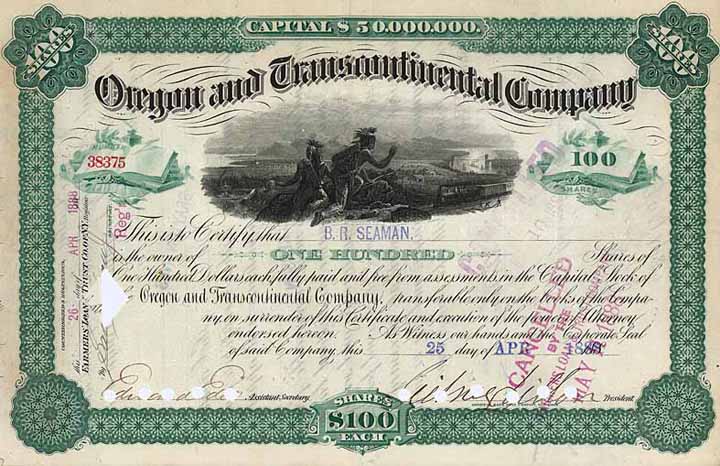 CAPITAL $50,000,000.
100
100
Oregon and Transcontinental Company
38375
100
SHARES
This is to Certify that B. R. SEAMAN.
is the owner of ONE HUNDRED Shares of
One Hundred Dollars each, fully paid and free from assessments, in the Capital Stock of
the Oregon and Transcontinental Company, transferable only on the Books of the Compa-
ny, on surrender of this Certificate and execution of the power of Attorney
endorsed hereon. As Witness our hands and the Corporate Seal
of said Company, this 25 day of APR 188
Assistant Secretary.
President
SHARES
$100
EACH
COUNTERSIGNED & REGISTERED,
this 26 day of APR 1888
FARMERS' LOAN & TRUST CO. OF N.Y. Registrar
By
Reg'r
CANCELLED
BY THE
MAY